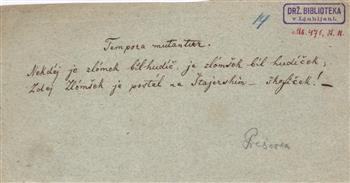 14
DRŽ. BIBLIOTEKA
v Ljubljani.
Ms. 471,
Tempora mutantur.
Nekdéj je zlómek bil hudič, je zlómšek bil hudíček;
Zdaj Slómšek je postal na Štajerskim – škofíček! –